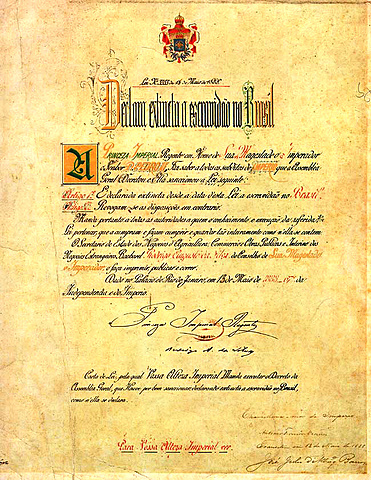 Lei Nº 3353 de 13 de Maio de 1888.
Declara extincta a escravidão no Brasil.
A Princeza Imperial Regente em Nome de Sua Magestade o Imperador
o Senhor D. Pedro II, Faz saber a todos os subditos do Imperio que a Assembléa
Geral Decretou e Ella sanccionou a Lei seguinte:
Artigo 1º É declarada extincta desde a data desta Lei a escravidão no Brazil.
Artigo 2º Revogam-se as disposições em contrario.
Manda portanto a todas as autoridades a quem o conhecimento e execução da referida
Lei pertencer, que a cumpram e façam cumprir e guardar tão inteiramente como n'ella se contem.
O Secretario de Estado dos Negocios d'Agricultura, Commercio e Obras Publicas e Interino dos
Negocios Estrangeiros, Bacharel Rodrigo Augusto da Silva do Conselho de Sua Magestade
o Imperador, o faça imprimir, publicar e correr.
Dado no Palacio do Rio de Janeiro, em 13 de Maio de 1888, 67º da
Independencia e do Imperio.
Princeza Imperial Regente
Rodrigo A. da Silva
Carta de Lei, pela qual Vossa Alteza Imperial Manda executar o Decreto da
Assembléa Geral, que Houve por bem sanccionar, declarando extincta a escravidão no Brazil,
como n'ella se declara.
Para Vossa Alteza Imperial ver.
Chancellaria-mór do Imperio
Antonio Ferreira Vianna
Transitou em 13 de Maio de 1888
José Julio de Albuquerque Barros